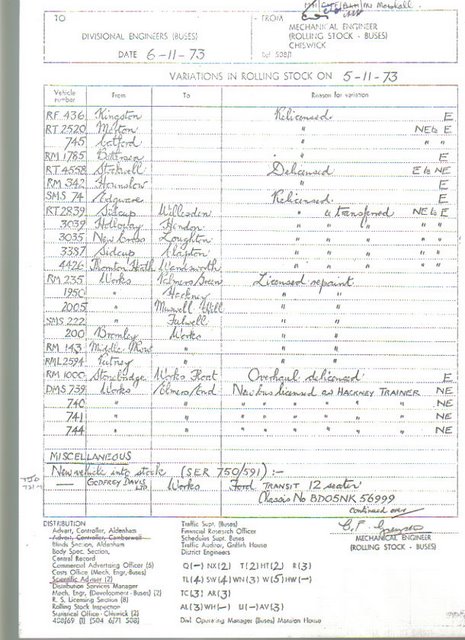 TO
DIVISIONAL ENGINEERS (BUSES)
DATE 6-11-73
FROM
MECHANICAL ENGINEER
(ROLLING STOCK - BUSES)
CHISWICK
VARIATIONS IN ROLLING STOCK ON 5-11-73
Vehicle number From To Reason for variation
RF 436 Kingston Relicensed E
RT 2520 Merton " NE to E
745 Catford " " "
RM 1785 Battersea " E
RT 4558 Stockwell Delicensed E to NE
RM 342 Hounslow " E
SMS 74 Edgware Relicensed E
RT 2839 Sidcup Willesden " & transferred NE to E
3039 Holloway Hendon " " " " "
3035 New Cross Loughton " " " " "
3387 Sidcup Clapton " " " " "
4426 Thornton Heath Wandsworth " " " " "
RM 235 Works Palmers Green Licensed repaint
1950 " Hackney " "
2005 " Muswell Hill " "
SMS 222 " Fulwell " "
200 Bromley Works " "
RM 143 Middle Row " " "
RML 2594 Putney " " "
RM 1000 Stonebridge Works Float Overhaul delicensed E
DMS 739 Works Elmers End New bus licensed as HACKNEY TRAINER NE
740 " " " " " " " NE
741 " " " " " " " NE
744 " " " " " " " NE
MISCELLANEOUS
New vehicle into stock (SER 750/591) :-
— GODFREY DAVIS LTD Works Ford TRANSIT 12 seater
Chassis No BD05NK 56999
continued over
MECHANICAL ENGINEER
(ROLLING STOCK - BUSES)
DISTRIBUTION
Advert. Controller, Aldenham
Advert. Controller, Camberwell
Blinds Section, Aldenham
Body Spec. Section,
Central Record
Commercial Advertising Officer (6)
Costs Office (Mech. Engr-Buses)
Scientific Adviser (2)
Distribution Services Manager
Mech. Engr. (Development - Buses) (2)
R. S. Licensing Section (8)
Rolling Stock Inspection
Statistical Office - Chiswick (2)
Traffic Supt. (Buses)
Financial Research Officer
Schedules Supt. Buses
Traffic Auditor, Griffith House
District Engineers
Q(—) NX(2) T(2) HT(2) R(3)
TL(4) SW(4) WN(3) W(5) HW(—)
TC(3) AR(3)
AL(3) WH(—) U(—) AV(3)
Divl. Operating Manager (Buses) Mansion House